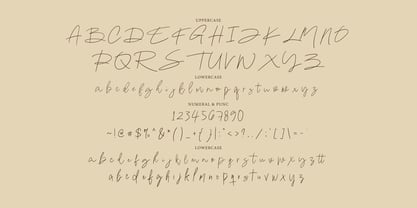 UPPERCASE
ABCDEFGHIJKLMNO
PQRSTUVWXYZ
LOWERCASE
abcdefghijklmnopqrstuvwxyz
NUMERAL & PUNC
1234567890
~!@#$%^&*()_+{}|:"<>?../;'[]\=-
LOWERCASE
abcdefghijklmnopqrstuvwxyz
abcdefghijklmnopqrstuvwxyz